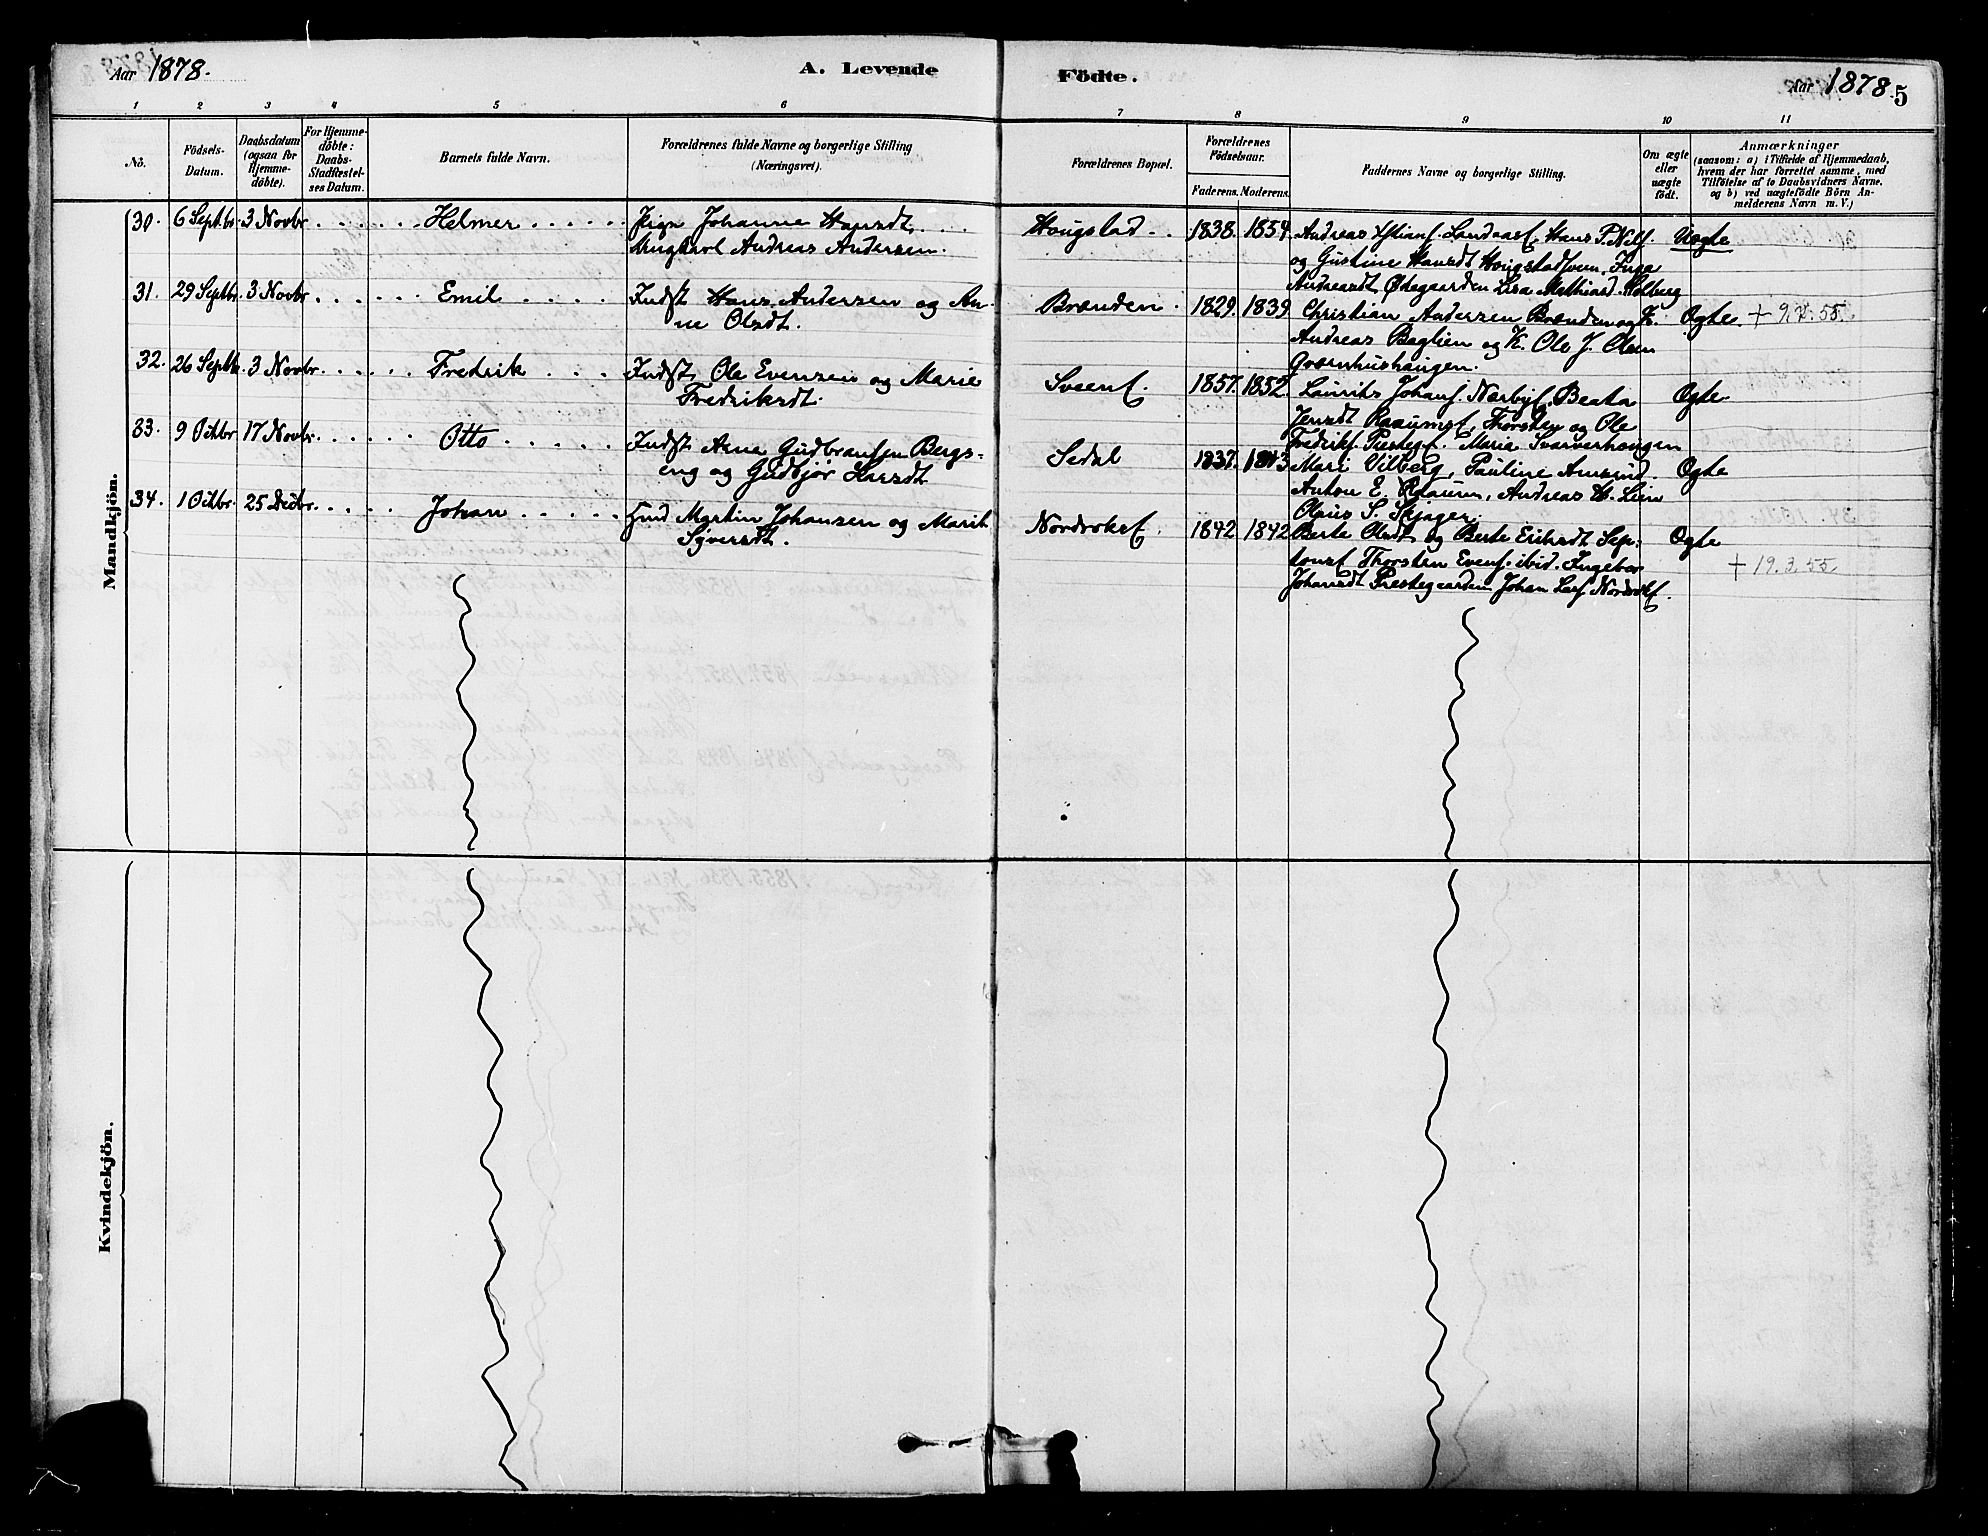 Aar 1878.
A. Levende
Födte.
Aar 1878. 5
1 2 3 4 5 6 7 8 9 10 11
No.
Födsels-Datum.
Daabsdatum (ogsaa for Hjemme-döbte).
For Hjemme-döbte: Daabs-Stadfæstel-ses Datum.
Barnets fulde Navn.
Forældrenes fulde Navne og borgerlige Stilling
(Næringsvei).
Forældrenes Bopæl.
Forældrenes Födselsaar.
Faderens. Moderens.
Faddernes Navne og borgerlige Stilling.
Om ægte eller uægte födt.
Anmærkninger
(saasom: a) i Tilfælde af Hjemmedaab,
hvem der har forrettet samme, med
Tilföielse af to Daabsvidners Navne.
og b) ved uægtefödte Börn An-
melderens Navn m. V.)
Mandkjön.
30. 6 Septbr. 3 Novbr. Helmer Pige Johanne Hansdt.
Ungkarl Andreas Andersen.
Hougstad 1838. 1854. Andreas Landaas, Hans P. Nils. Uægte
og Gustine Hansdt Hougstad, Inga
Andreasdt Ödegaarden Lisa Mathiasd. Kolberg
31. 29 Septbr. 3 Novbr. Emil Indst Hans Andersen og An-
ne Olsdt.
Brænden 1829. 1839 Christian Andersen Brænden og K. Ægte. + 55.
Andreas Baglien og K. Ole J. Olsen
Qværnhushaugen.
32. 26 Septbr. 3 Novbr. Fredrik Indst, Ole Evensen og Marie
Fredriksdt.
Sveen 1857. 1852. Laurits Johans. Narby, Beata Ægte.
Jensdt Raaum, Thorsten og Ole
Fredriks. Præsteg. Maria Svarverhaugen
33. 9 Octbr 17 Novbr. Otto Indst Arne Gudbransen Bergs-
eng og Gudbjør Larsdt
Sedal 1837. 1843 Mari Vilberg, Pauline Amrud. Ægte
Anton E. Raaum, Andreas H. Lien
Olaus S. Skjager.
34. 1 Octbr. 25 Decbr. Johan Gmd Martin Johansen og Marit
Syversdt.
Nordvoks 1842 1842 Berte Olsdt og Berte Eriksdt Ægte
Thorsten Evens. ibid. Ingebor + 19.3.55.
Johansdt Præstegaarden Johan Nordvoks.
Kvindekjön.